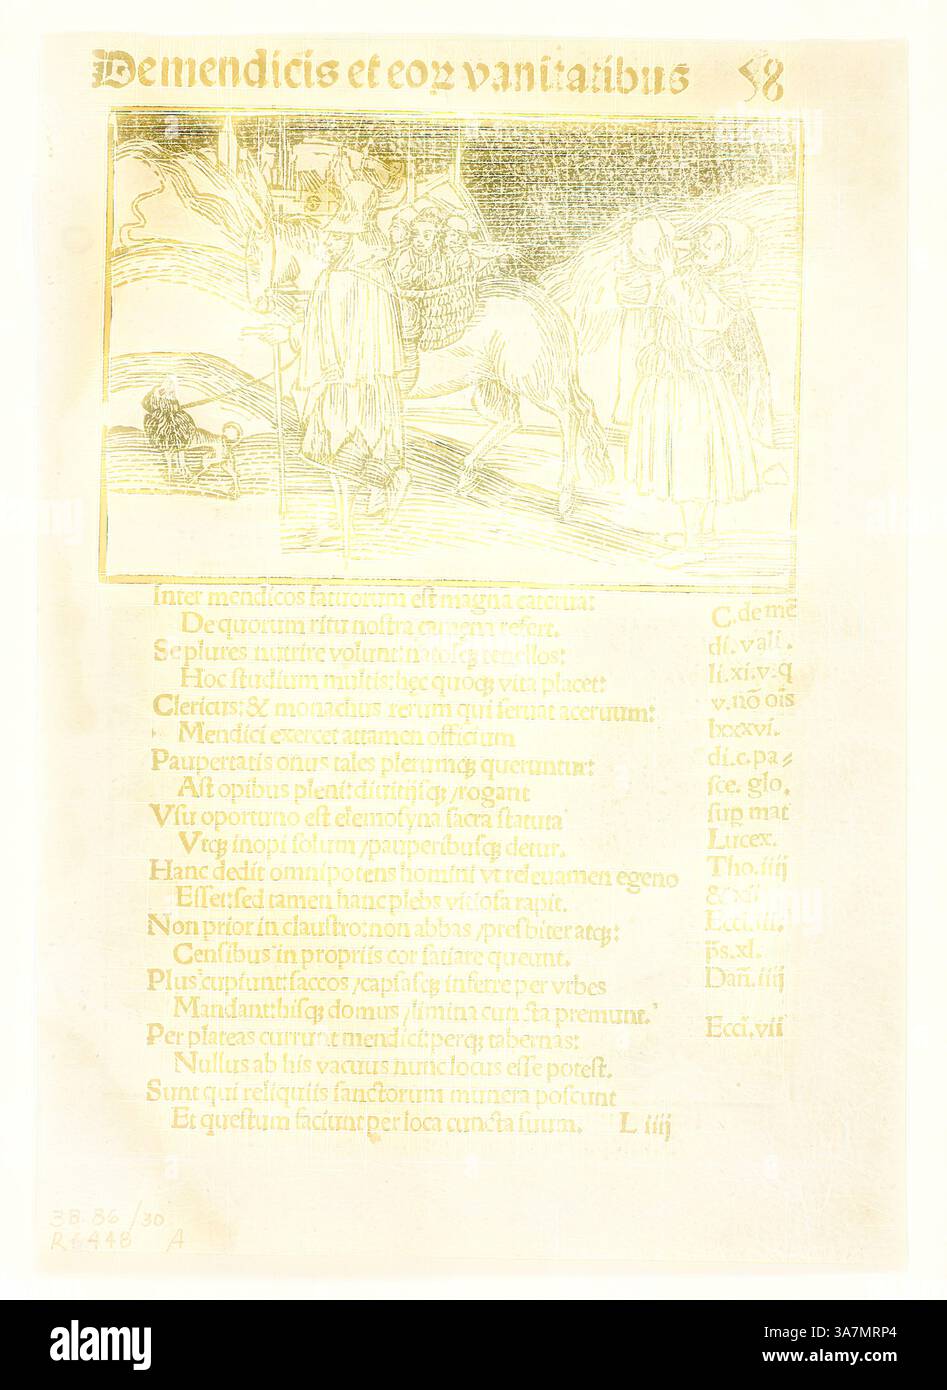 De mendicis et eoꝝ vanitatibus 58
Inter mendicos fatuorum est magna caterua:
De quorum ritu nostra camena refert.
Se plures nutrire volunt: natosqꝫ tenellos:
Hoc studium multis: hęc quoqꝫ vita placet:
Clericus: & monachus rerum qui seruat aceruum:
Mendici exercet attamen officium
Paupertatis onus tales plerumqꝫ queruntur:
Ast opibus pleni: diuitijsqꝫ /rogant
Vsu oportuno est elemosyna sacra statuta
Vtqꝫ inopi solum /pauperibusqꝫ detur.
Hanc dedit omnipotens homini vt releuamen egeno
Esset: sed tamen hanc plebs vitiosa rapit.
Non prior in claustro: non abbas /presbiter atqꝫ:
Censibus in propriis cor satiare queunt.
Plus cupiunt: saccos /capsasqꝫ inferre per vrbes
Mandant: hisqꝫ domus /limina cuncta premunt.
Per plateas currunt mendici: perqꝫ tabernas:
Nullus ab his vacuus nunc locus esse potest.
Sunt qui reliquiis sanctorum munera poscunt
Et questum faciunt per loca cuncta suum. L iiij
C. de mē
di. vali.
li. xi. v. q
v. nō oīs
lxxxvi.
di. c. pa⸗
sce. glo.
sup mat
Luce x.
Tho. iiij
Ecci. iii.
p̄s. xl.
Dañ. iiij
Ecci. vii
38.86/30
R6448 A
alamy
Image ID: 3A7MRP4
www.alamy.com